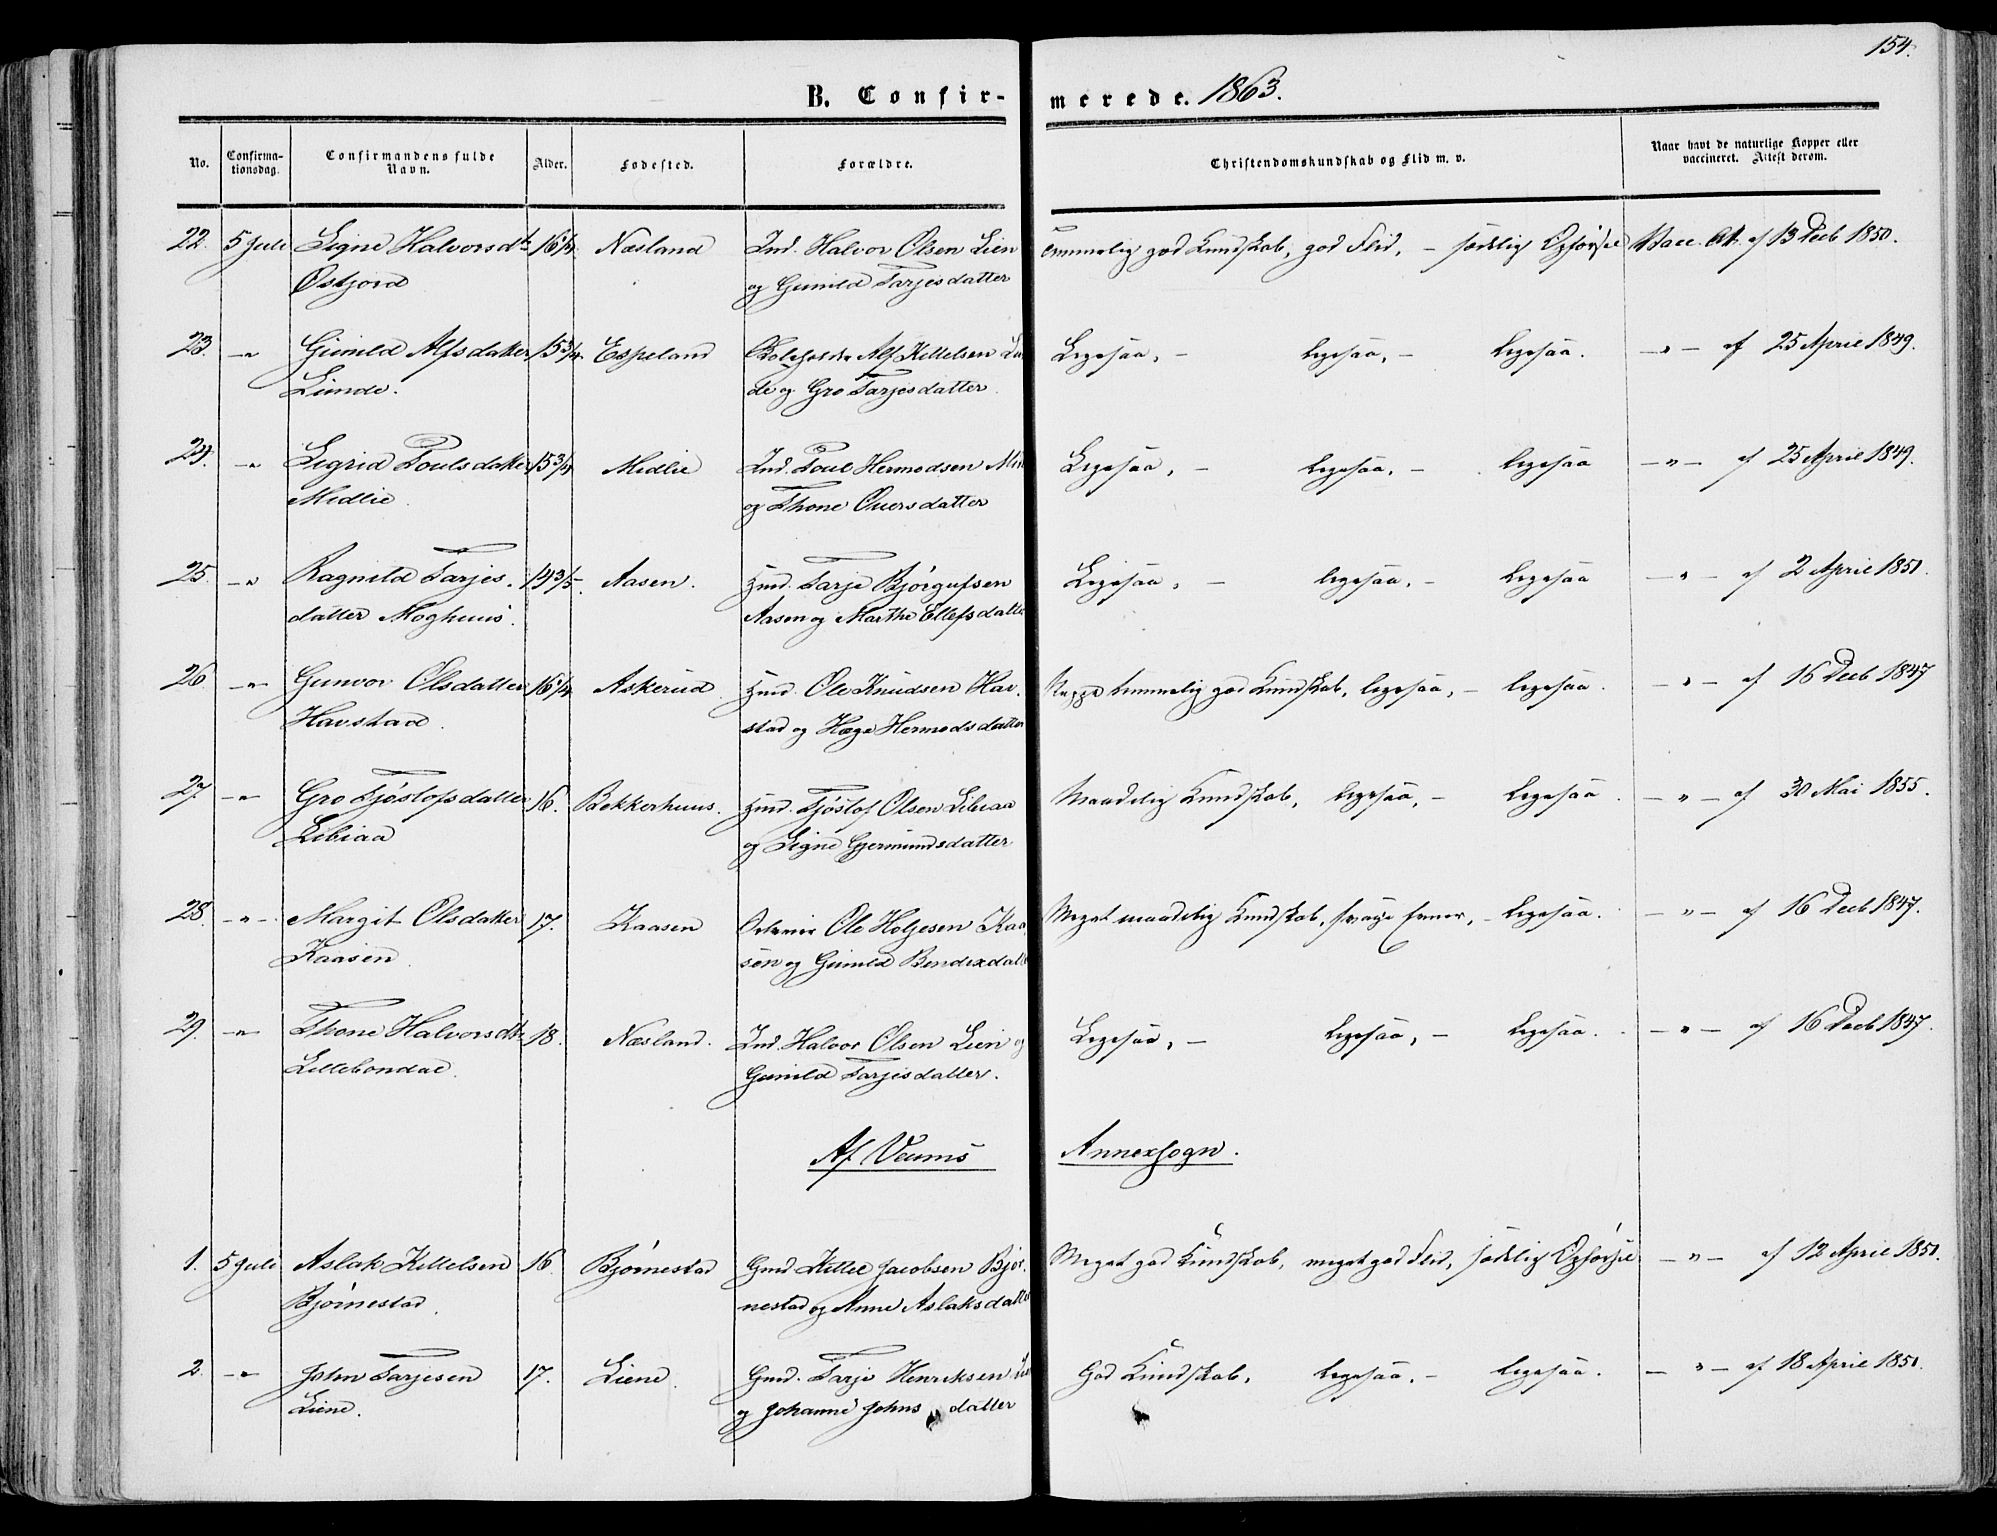 154.
B. Confirmerede. 1863.
No. Confirmationsdag. Confirmandens fulde Navn. Alder. Fødested. Forældre. Christendomskundskab og Flid m. v. Naar havt de naturlige Kopper eller vaccineret. Attest derom.
22. 5 Juli Signe Halvorsdt 16 1/4. Næsland Ind. Halvor Olsen Lien temmelig god Kundskab, god Flid, – sædelig Opførsel Vacc. Att. af 13 Decb 1850.
Østjord og Gunild Tarjesdatter
23. –„– Gunild Alfsdatter 15 3/4. Espeland Alf Kittelsen Lun Ligesaa, – ligesaa, – ligesaa. –„– af 25 April 1849.
Lunde. de og Gro Tarjesdatter.
24. –„– Sigrid Toulsdatter 15 3/4 Midlie Ind. Toul Hermodsen Ligesaa, – ligesaa, – ligesaa –„– af 25 April 1849.
Midlie. og Thone datter
25. –„– Ragnild Tarjes- 14 3/5. Aasen. Huusm. Tarje Bjørgufsen Ligesaa, – ligesaa, – ligesaa –„– af 2 April 1851.
datter Moghuus. Aasen og Marthe Ellefsdatter
26. –„– Gunvor Olsdatter 16 1/4 Askerud Huusm. Ole Knudsen Hav- temmelig god Kundskab, ligesaa, – ligesaa. –„– af 16 Decb 1847
Havstad. stad og Hæge Hermodsdatter
27. –„– Gro Tjøstofsdatter 16. Bekkerhuus. Huusm. Tjøstof Olsen Libiaa Maadelig Kundskab, ligesaa, – ligesaa. –„– af 30 Mai 1855.
Libiaa og Signe Gjermundsdatter
28. –„– Margit Olsdatter 17. Kaasen Ole Holjesen Kaa- Meget maadelig Kundskab, svage Evner, – ligesaa. –„– af 16 Decb 1847.
Kaasen. sen og Gunild Bendixdatter
29. –„– Thone Halvorsdt. 18. Næsland. Ind. Halvor Olsen Lien og Ligesaa, – ligesaa, – ligesaa. –„– af 16 Decb 1847.
Gunild Tarjesdatter.
Af Veums Annexsogn.
1. 5 Juli Aslak Kittelsen 16. Bjørnestad Gmd. Kittel Jacobsen Bjør- Meget god Kundskab, meget god Flid, sædelig Opførsel –„– af 12 April 1851.
Bjørnestad. nestad og Anne Aslaksdatter
2. –„– John Tarjesen 17. Liene. Gmd. Tarje Henriksen God Kundskab, ligesaa, – ligesaa. –„– af 18 April 1851.
Liene. og Johanne Johnsdatter